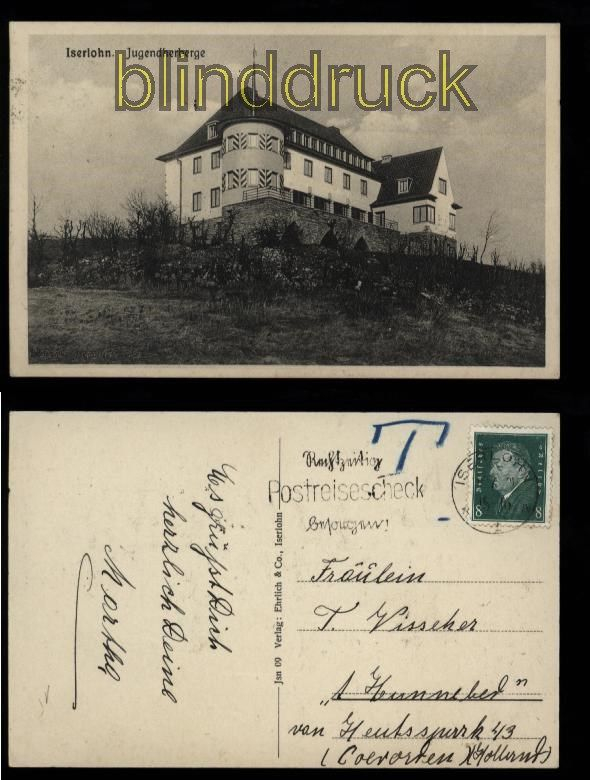 Iserlohn. Jugendherberge
blinddruck
T
Rechtzeitig
Postreisescheck
besorgen!
8 8
Es grüßt Dich
herzlich Deine
Marthe
Jsn 09 Verlag: Ehrlich & Co., Iserlohn
Fräulein
T. Visscher
"t Hunnebed"
van Heutszpark 43
(Coevorden) (Holland)